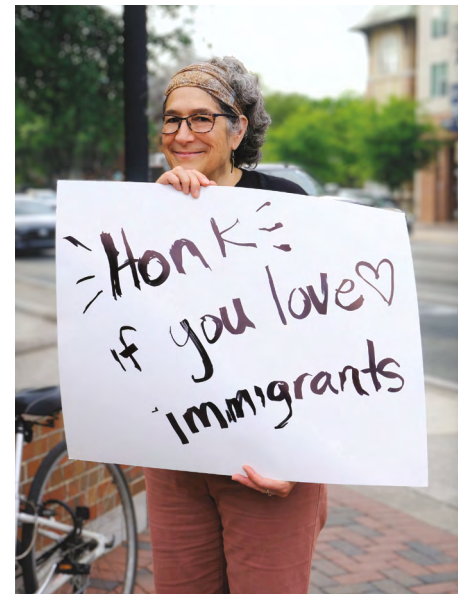 Honk
if you love♡
immigrants